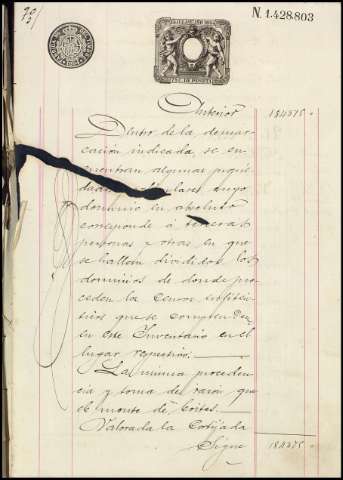 N. 1.428.803
Anterior 184375
Dentro de la demar-
cación indicada, se en-
cuentran algunas propie-
dades cuyo
dominio en absoluto
corresponde á terceras
personas y otras en que
se hallan divididos los
dominios de donde pro-
ceden los censos enfitéu-
ticos que se comprenden
en este Inventario en el
lugar respectivo.
La misma proceden-
cia y toma de razón que
el monte de Coites.
Valorada la Cortijada
Sigue 184375